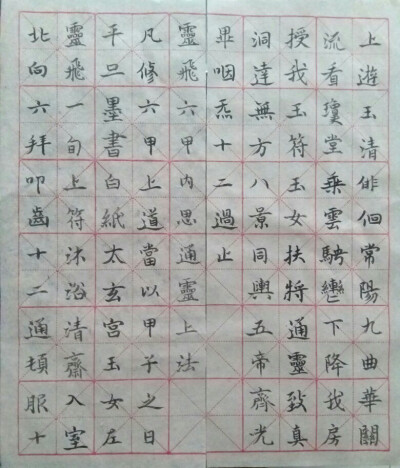 上遊玉清俳佪常陽九曲華關
流看瓊堂乘雲騁轡下降我房
授我玉符玉女扶將通靈致真
洞達無方八景同輿五帝齊光
畢咽炁十二過止
靈飛六甲內思通靈上法
凡修六甲上道當以甲子之日
平旦墨書白紙太玄宮玉女左
靈飛一旬上符沐浴清齋入室
北向六拜叩齒十二通頓服十